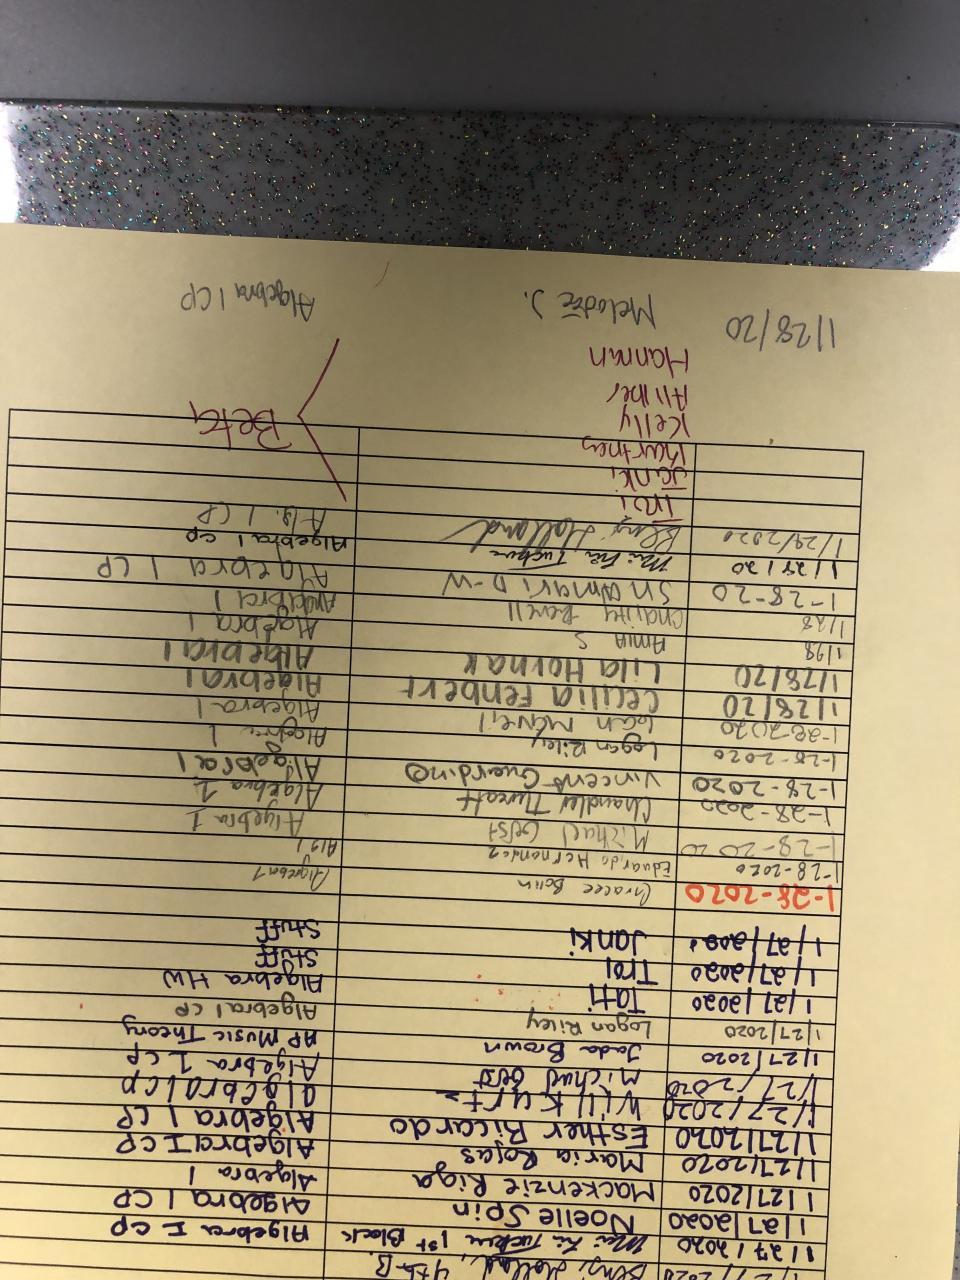 Benji Holland, 4th B.
1/27/2020 Mai Lia Tucker 1st Block Algebra I CP
1/27/2020 Noelle Spin Algebra 1 CP
1/27/2020 Mackenzie Riga Algebra 1
1/27/2020 Maria Rojas Algebra I CP
1/27/2020 Esther Ricardo Algebra 1 CP
1/27/2020 Will Kurtz algebra 1 cp
1/27/2020 Michael Gerst Algebra 1 CP
1/27/2020 Jada Brown AP Music Theory
1/27/2020 Logan Riley Algebra 1 CP
1/27/2020 Tati Algebra HW
1/27/2020 Troi Stuff
1/27/202 Janki Stuff
1-28-2020 Algebra 1
1-28-2020 Eduardo Hernandez Alg 1
1-28-2020 Michael Gerst Algebra 1
1-28-2020 Chandler Algebra 1
1-28-2020 Vincent Guardino Algebra 1
1-28-2020 Logan Riley Algebra 1
1-28-2020 Algebra 1
1/28/20 Cecilia Fenbert Algebra 1
1/28/20 Lila Hornak Algebra 1
1/28 Amia S Algebra 1
1/28 Charity Algebra 1
1-28-20 Sh'Amari D-W Algebra 1 CP
1/28/20 Mai Lia Tucker Algebra 1 CP
Benji Holland Alg. 1 CP
Troi
Janki
Kurtney
Kelly
Hannah
Beta
1/28/20 Melodie J. Algebra 1 CP